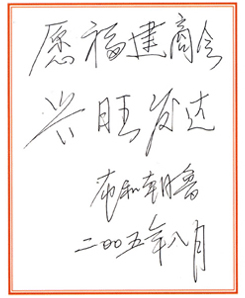 愿福建商会
兴旺发达
布和朝鲁
二〇〇五年八月